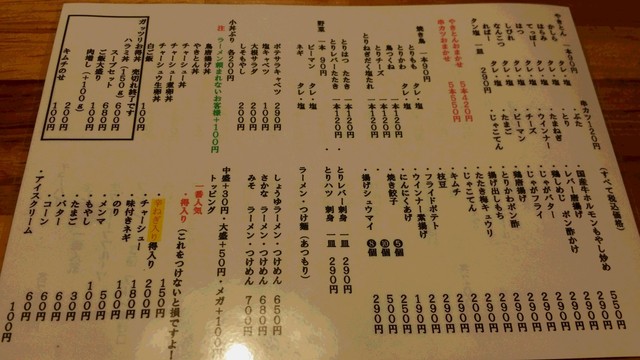 やきとん 一本90円
かしら タレ・塩
はらみ タレ・塩
てっぽう タレ・塩
はつ タレ・塩
しびれ タレ・塩
なんこつ タレ・塩
ればー タレ・塩
タン塩 一皿 290円
串カツ 120円
・ぶた
・とり
・たまねぎ
・ウインナー
・チーズ
・ピーマン
・たまご
・じゃこてん
やきとんおまかせ 5本420円
串カツおまかせ 5本550円
焼き鳥 一本90円
とりもも タレ・塩
とりかわ タレ・塩
鳥つくね 一本120円
とりチーズ 一本120円
とりねぎだく塩たれ 一本120円
とりはつ たたき 一本120円
とりレバーたたき 一本120円
野菜 一本90円
・ピーマン タレ・塩
・ネギ タレ・塩
ポテサラキャベツ 290円
塩キャベツ 100円
大根サラダ 200円
しそもやし 200円
小丼ぶり 各200円
注 ラーメン頼まれないお客様+100円
鳥磨揚げ丼
やきとん丼
チャーシュー丼
チャーシュー重卵丼
チャーシュー生卵丼
白ご飯 100円
ガッツリお得丼 売切れ終了です
ハラミ丼(150g) 600円
スープセット 680円
ご飯大盛り 100円
肉増し(+100g) 200円
キムチのせ 100円
(すべて税込価格)
・国産牛ホルモンもやし炒め 550円
・レバー唐揚げ 290円
・鶏しんぞう ポン酢かけ 290円
・じゃがバター 290円
・じゃがフライ 290円
・鶏唐揚げ 290円
・とりかわポン酢 290円
・揚げ出しもち 290円
・たたき梅キュウリ 290円
・じゃこてん 290円
・キムチ 290円
・枝豆 290円
・フライドポテト 290円
・ウインナー素揚げ 190円
・にんにくあげ 200円
・焼き餃子 5個 290円
10個 500円
・揚げシュウマイ 8個 290円
・とりレバー刺身 一皿 290円
・とりハツ 刺身 一皿 290円
ラーメン・つけ麺(あつもり)
しょうゆラーメン・つけめん 650円
さかな ラーメン・つけめん 680円
みそ ラーメン・つけめん 700円
中盛+30円・大盛+50円・メガ+100円
トッピング
一番人気
・得入り (これをつけないと損ですよ!) 150円
・辛ねぎ入り得入り 200円
・チャーシュー 200円
・味付きネギ 180円
・のり 100円
・メンマ 50円
・もやし 100円
・たまご 30円
・バター 60円
・コーン 60円
・アイスクリーム 100円